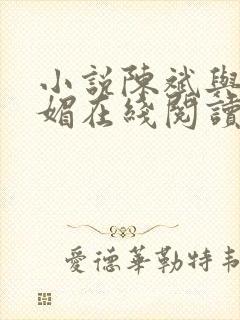 小說陳斌與
媚在綫閱讀
愛德華勒特韋